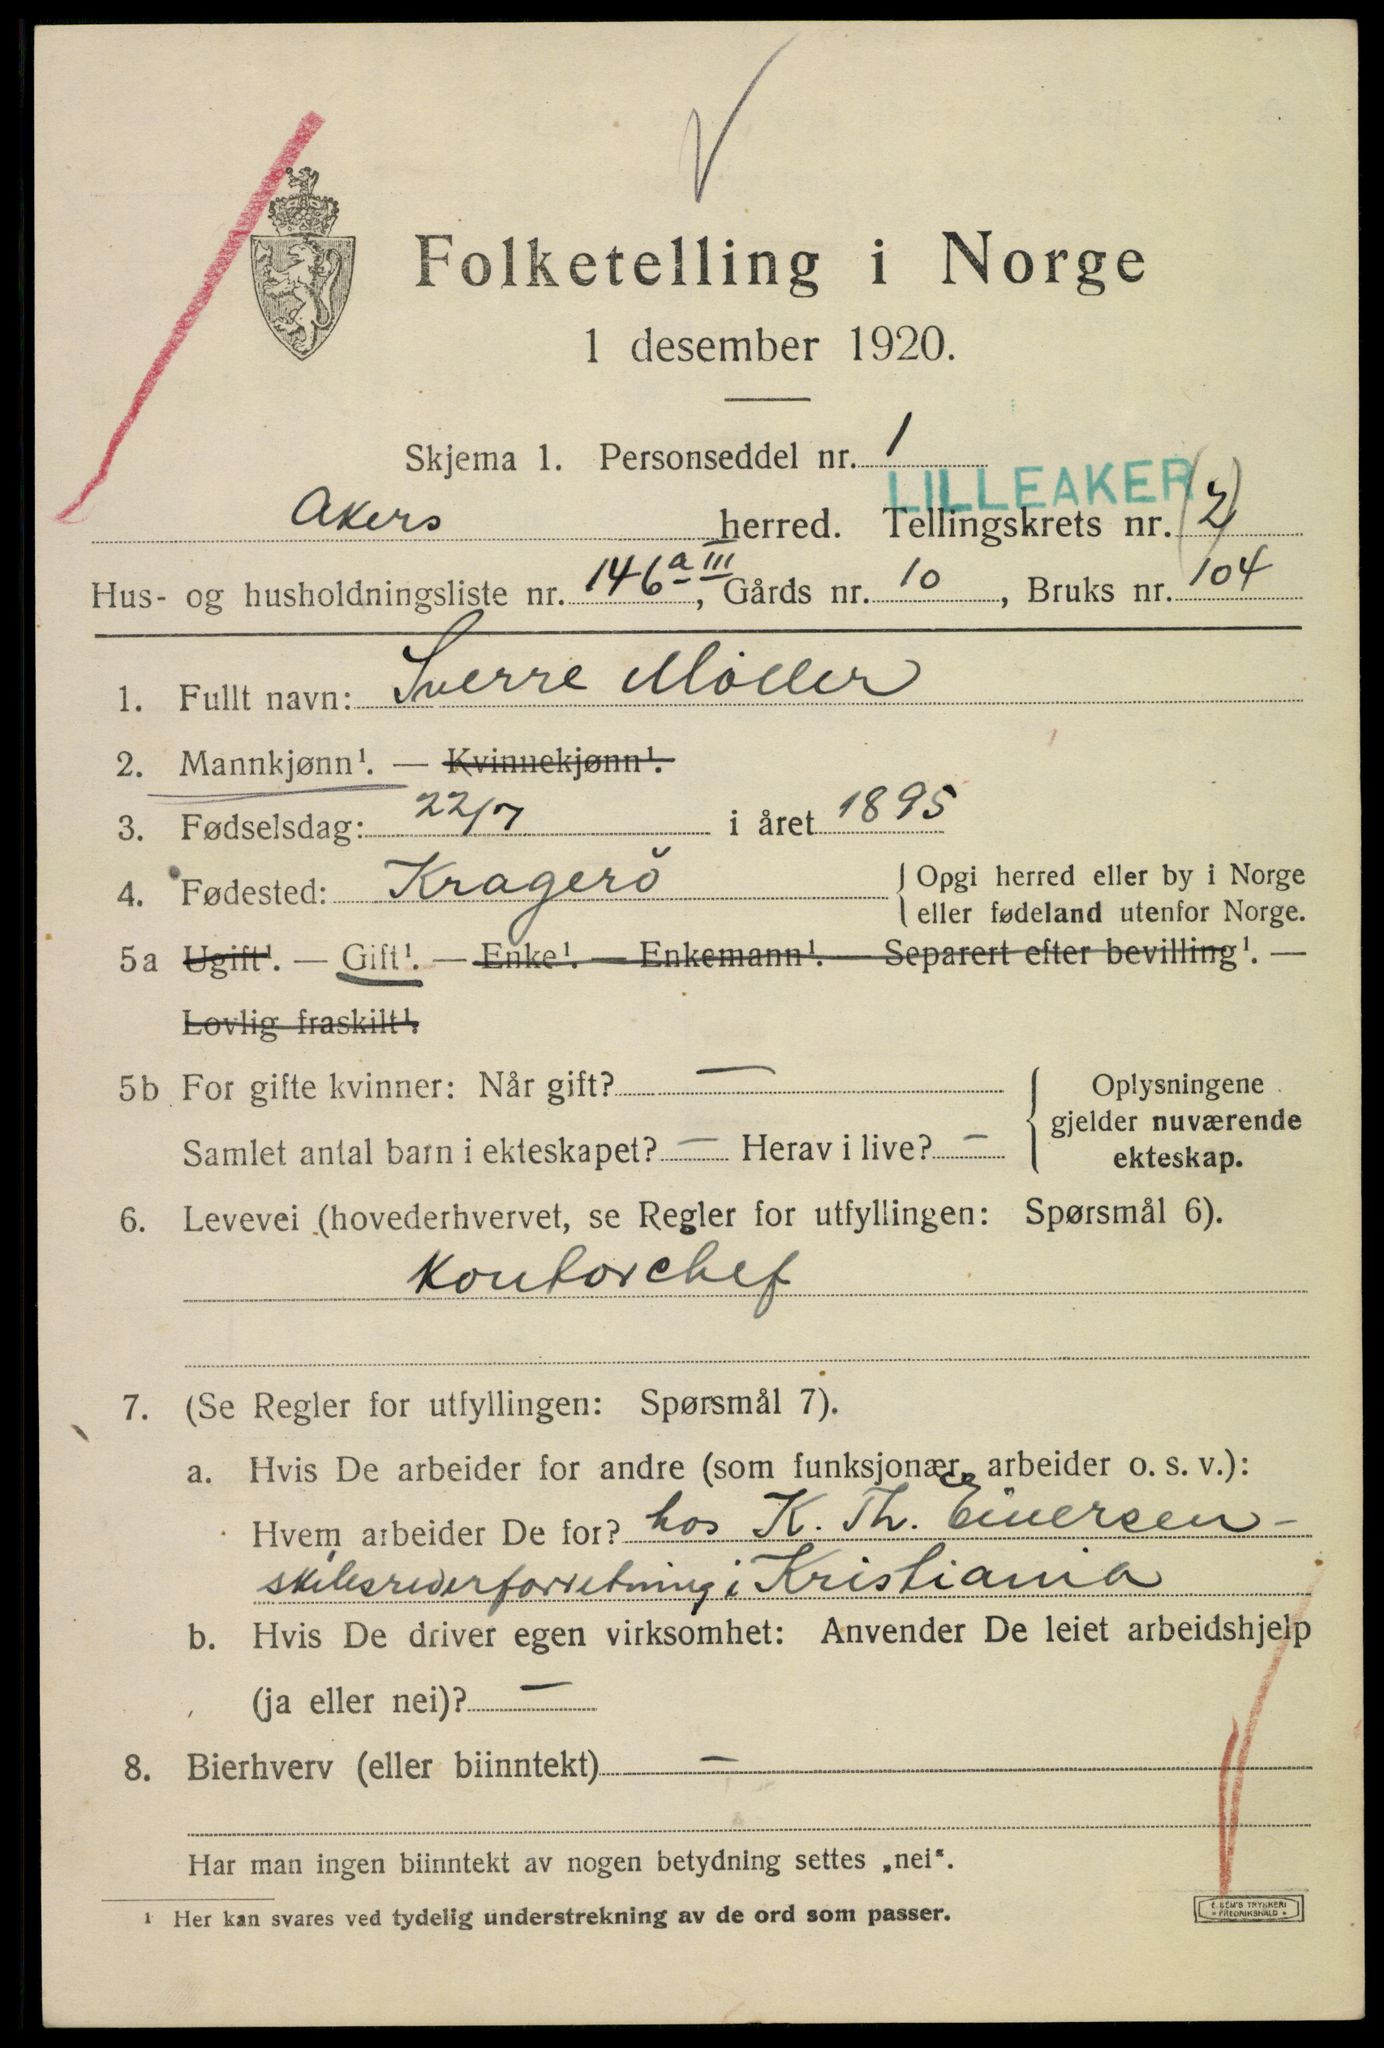 Folketelling i Norge
1 desember 1920.
Skjema 1. Personseddel nr. 1
LILLEAKER
Akers herred. Tellingskrets nr. (2)
Hus- og husholdningsliste nr. 146 a III, Gårds nr. 10, Bruks nr. 104
1. Fullt navn: Sverre Möller
2. Mannkjønn¹. — Kvinnekjønn¹.
3. Fødselsdag: 22/7 i året 1895
4. Fødested: Kragerö { Opgi herred eller by i Norge
eller fødeland utenfor Norge.
5a Ugift¹. — Gift¹. — Enke¹. — Enkemann¹. — Separert efter bevilling¹. —
Lovlig fraskilt¹.
5b For gifte kvinner: Når gift? —
Samlet antal barn i ekteskapet? — Herav i live? —
{ Oplysningene
gjelder nuværende
ekteskap.
6. Levevei (hovederhvervet, se Regler for utfyllingen: Spørsmål 6).
Kontorchef
7. (Se Regler for utfyllingen: Spørsmål 7).
a. Hvis De arbeider for andre (som funksjonær, arbeider o. s. v.):
Hvem arbeider De for? hos K. Th. Einersen -
skibsrederforretning i Kristiania
b. Hvis De driver egen virksomhet: Anvender De leiet arbeidshjelp
(ja eller nei)? —
8. Bierhverv (eller biinntekt) —
Har man ingen biinntekt av nogen betydning settes „nei“.
¹ Her kan svares ved tydelig understrekning av de ord som passer.
E. SEM'S TRYKKERI
* FREDRIKSHALD *